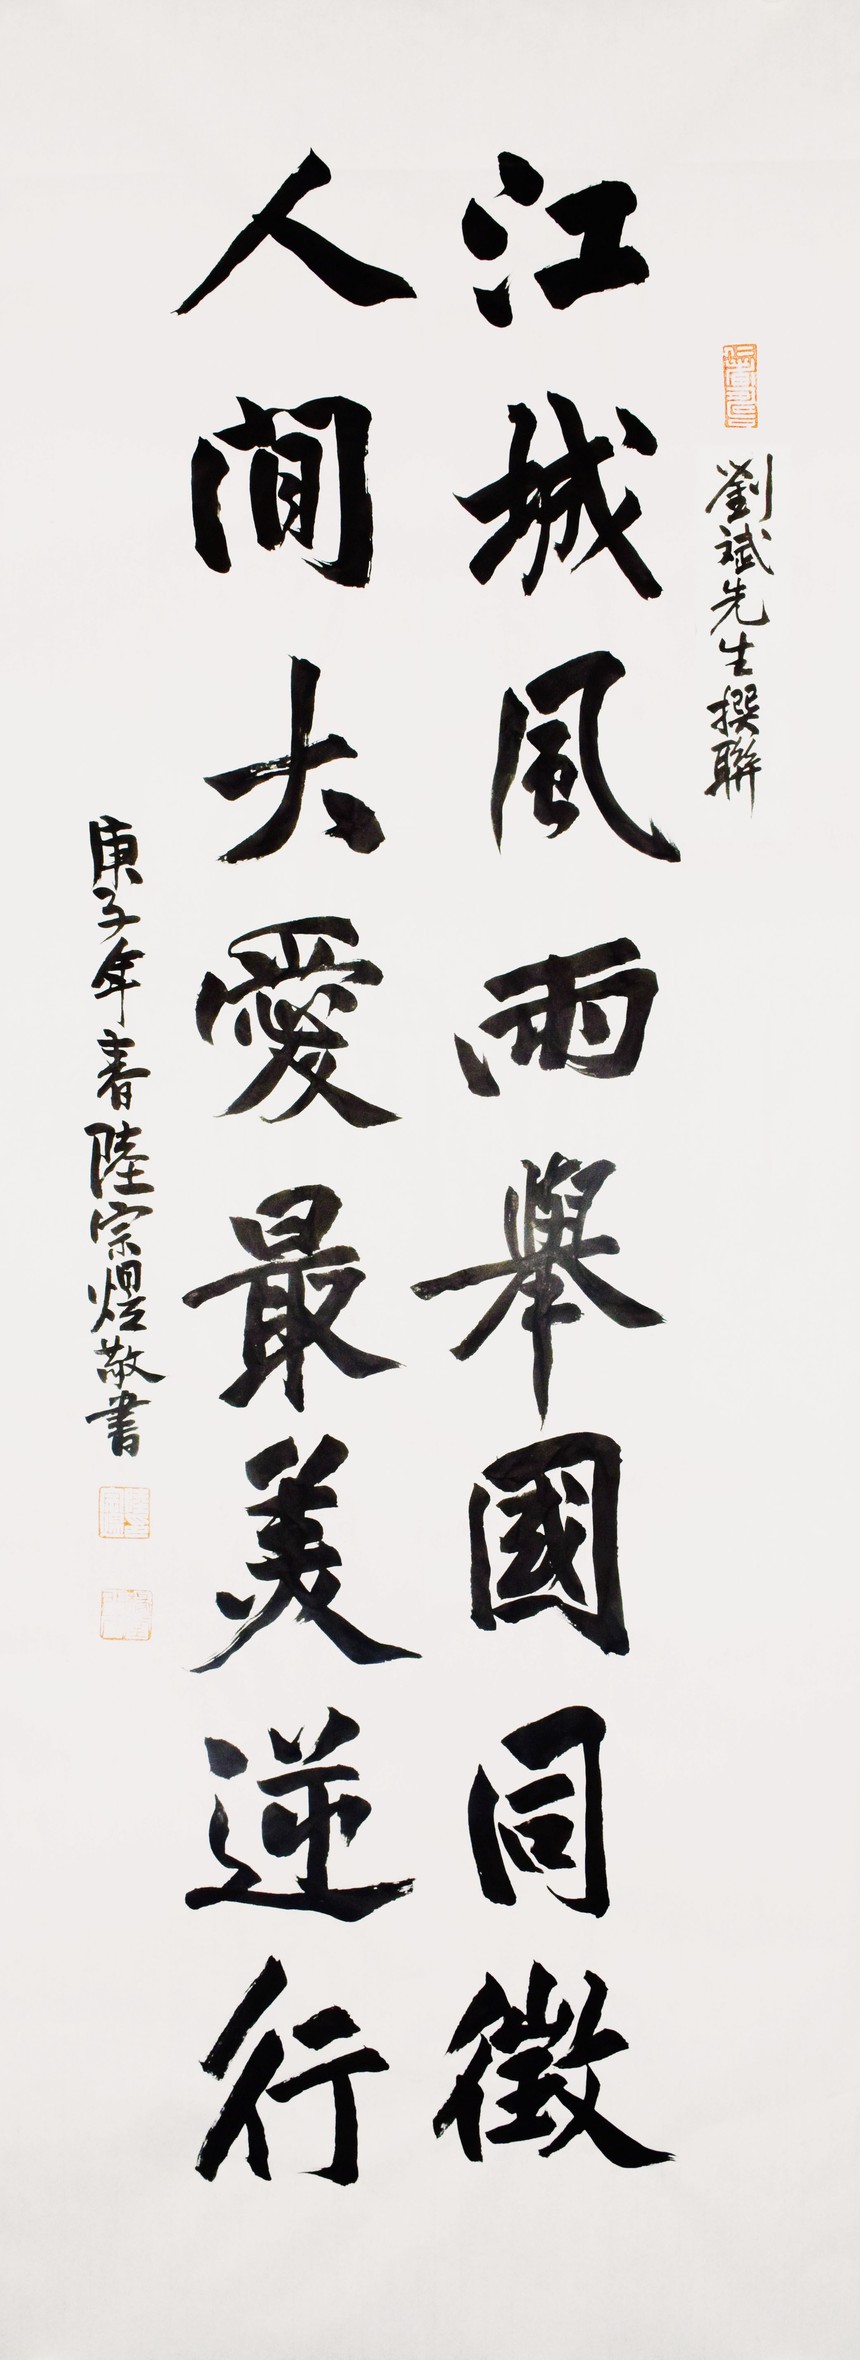 劉斌先生撰聯
江城風雨舉國同徵
人間大愛最美逆行
庚子年春陸宗煜敬書